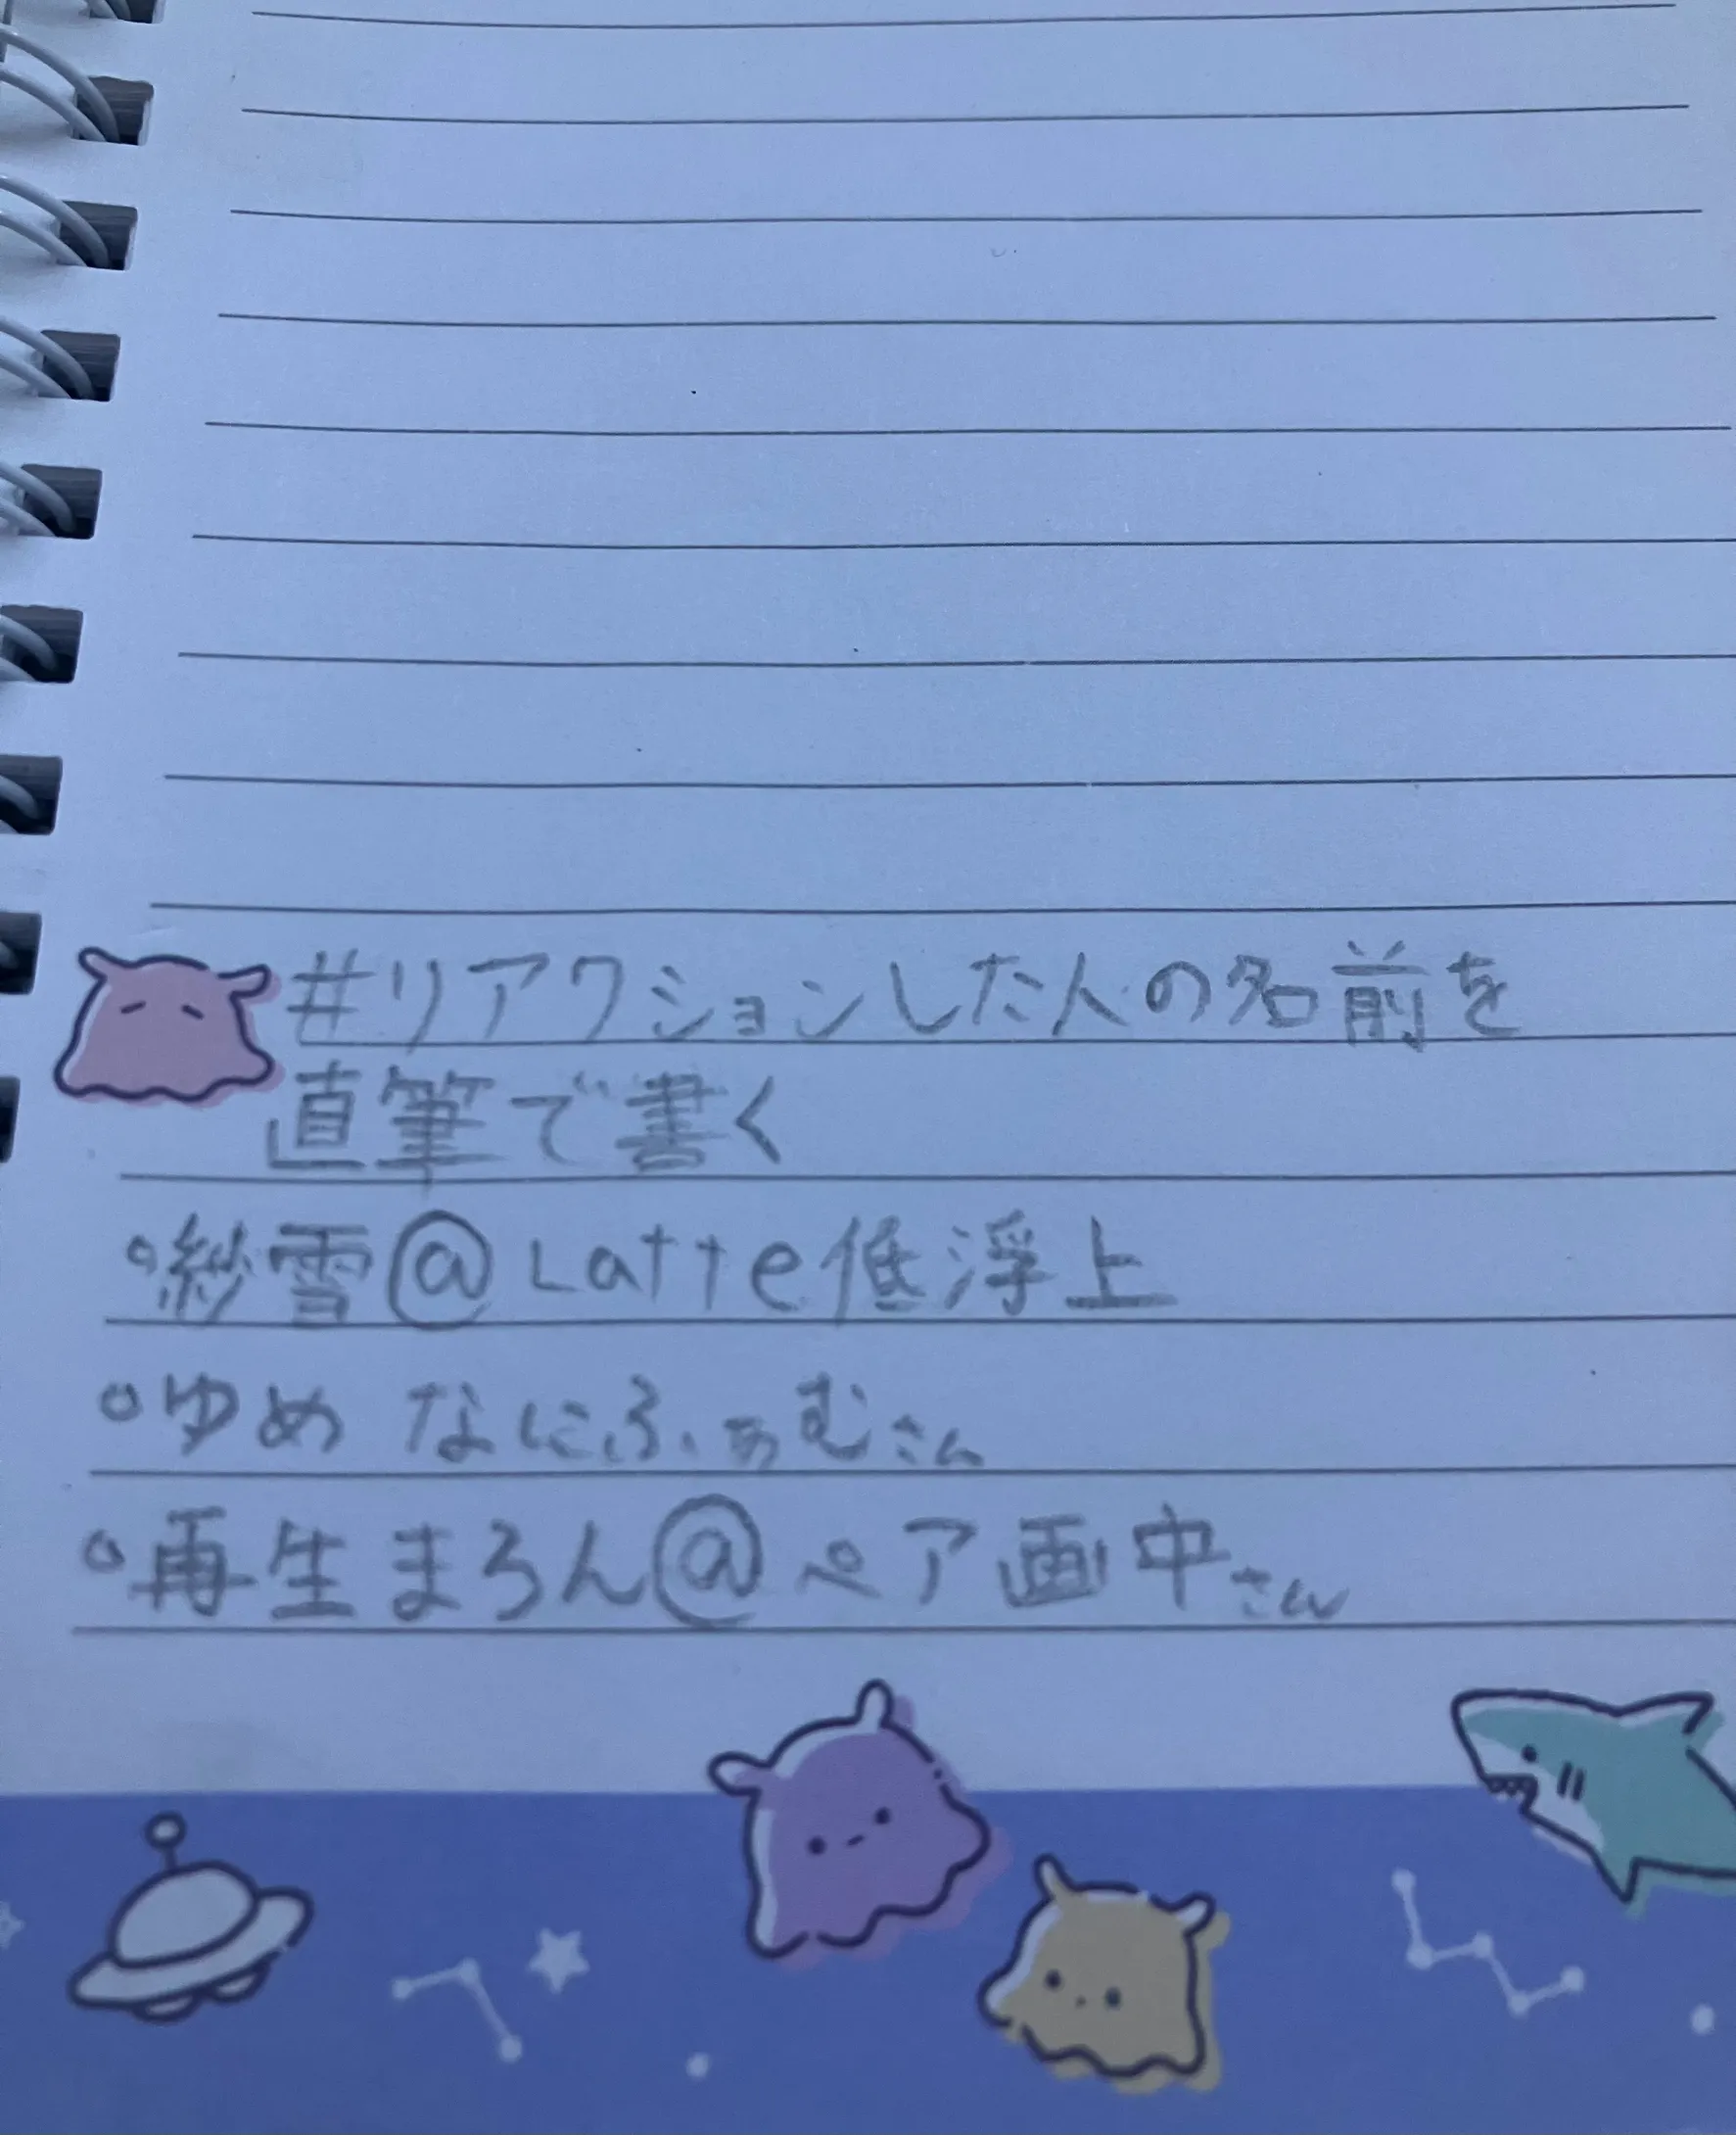 #リアクションした人の名前を
直筆で書く
◦紗雪@Latte低浮上
◦ゆめ なにふぁむさん
◦再生まろん@ペア画中さん